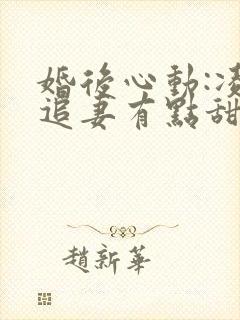 婚後心動:凌
追妻有點甜
趙新華